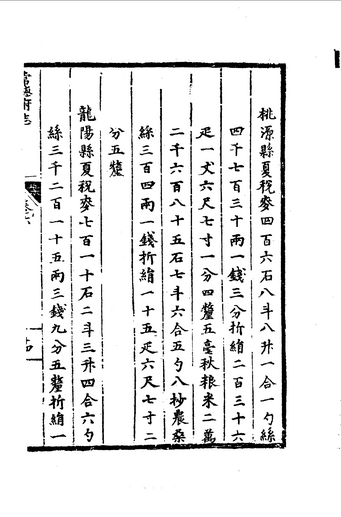 桃源縣夏稅麥四百六石八斗八升一合一勺絲
四千七百三十兩一錢三分折絹二百三十六
疋一丈六尺七寸一分四釐五毫秋粮米二萬
二千六百八十五石七斗六合五勺八抄農桑
絲三百四兩一錢折絹一十五疋六尺七寸二
分五釐
龍陽縣夏稅麥七百一十石二斗三升四合六勺
絲三千二百一十五兩三錢九分五釐折絹一
常德府志
卷六